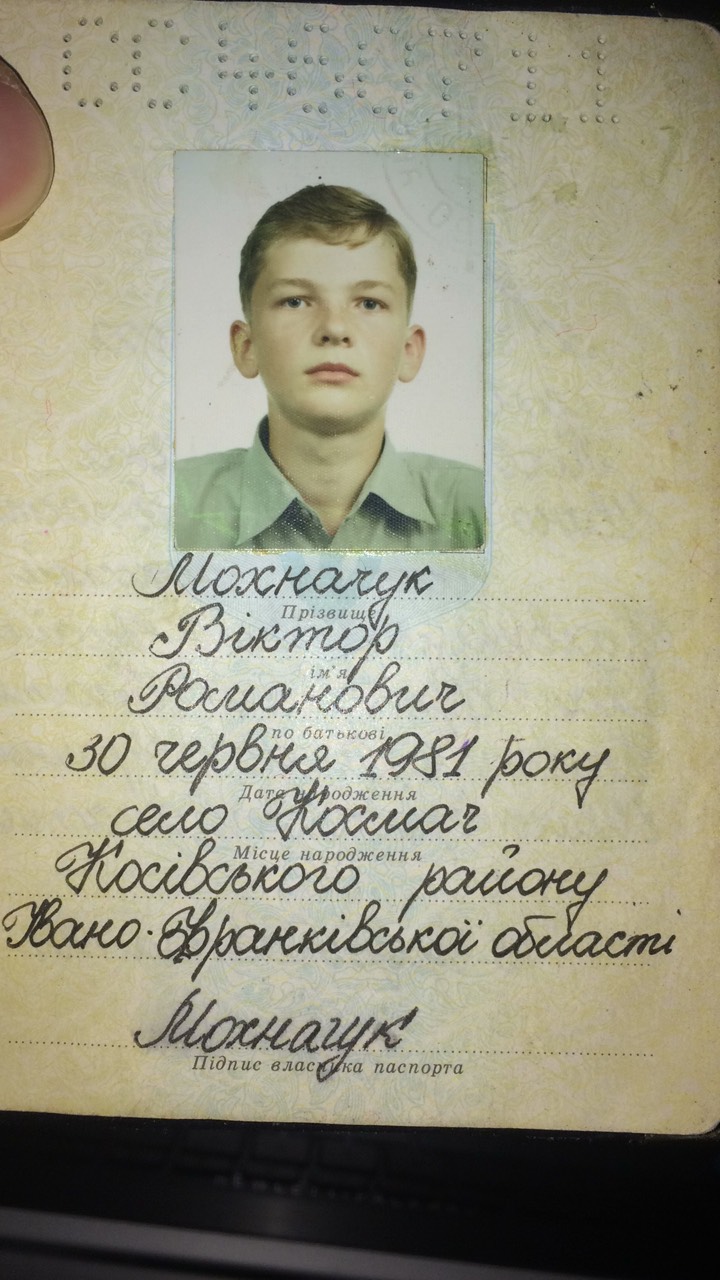 Мохначук
Прізвище
Віктор
ім'я
Романович
по батькові
30 червня 1981 року
Дата народження
село Космач
Місце народження
Косівського району
Івано-Франківської області
Мохначук
Підпис власника паспорта